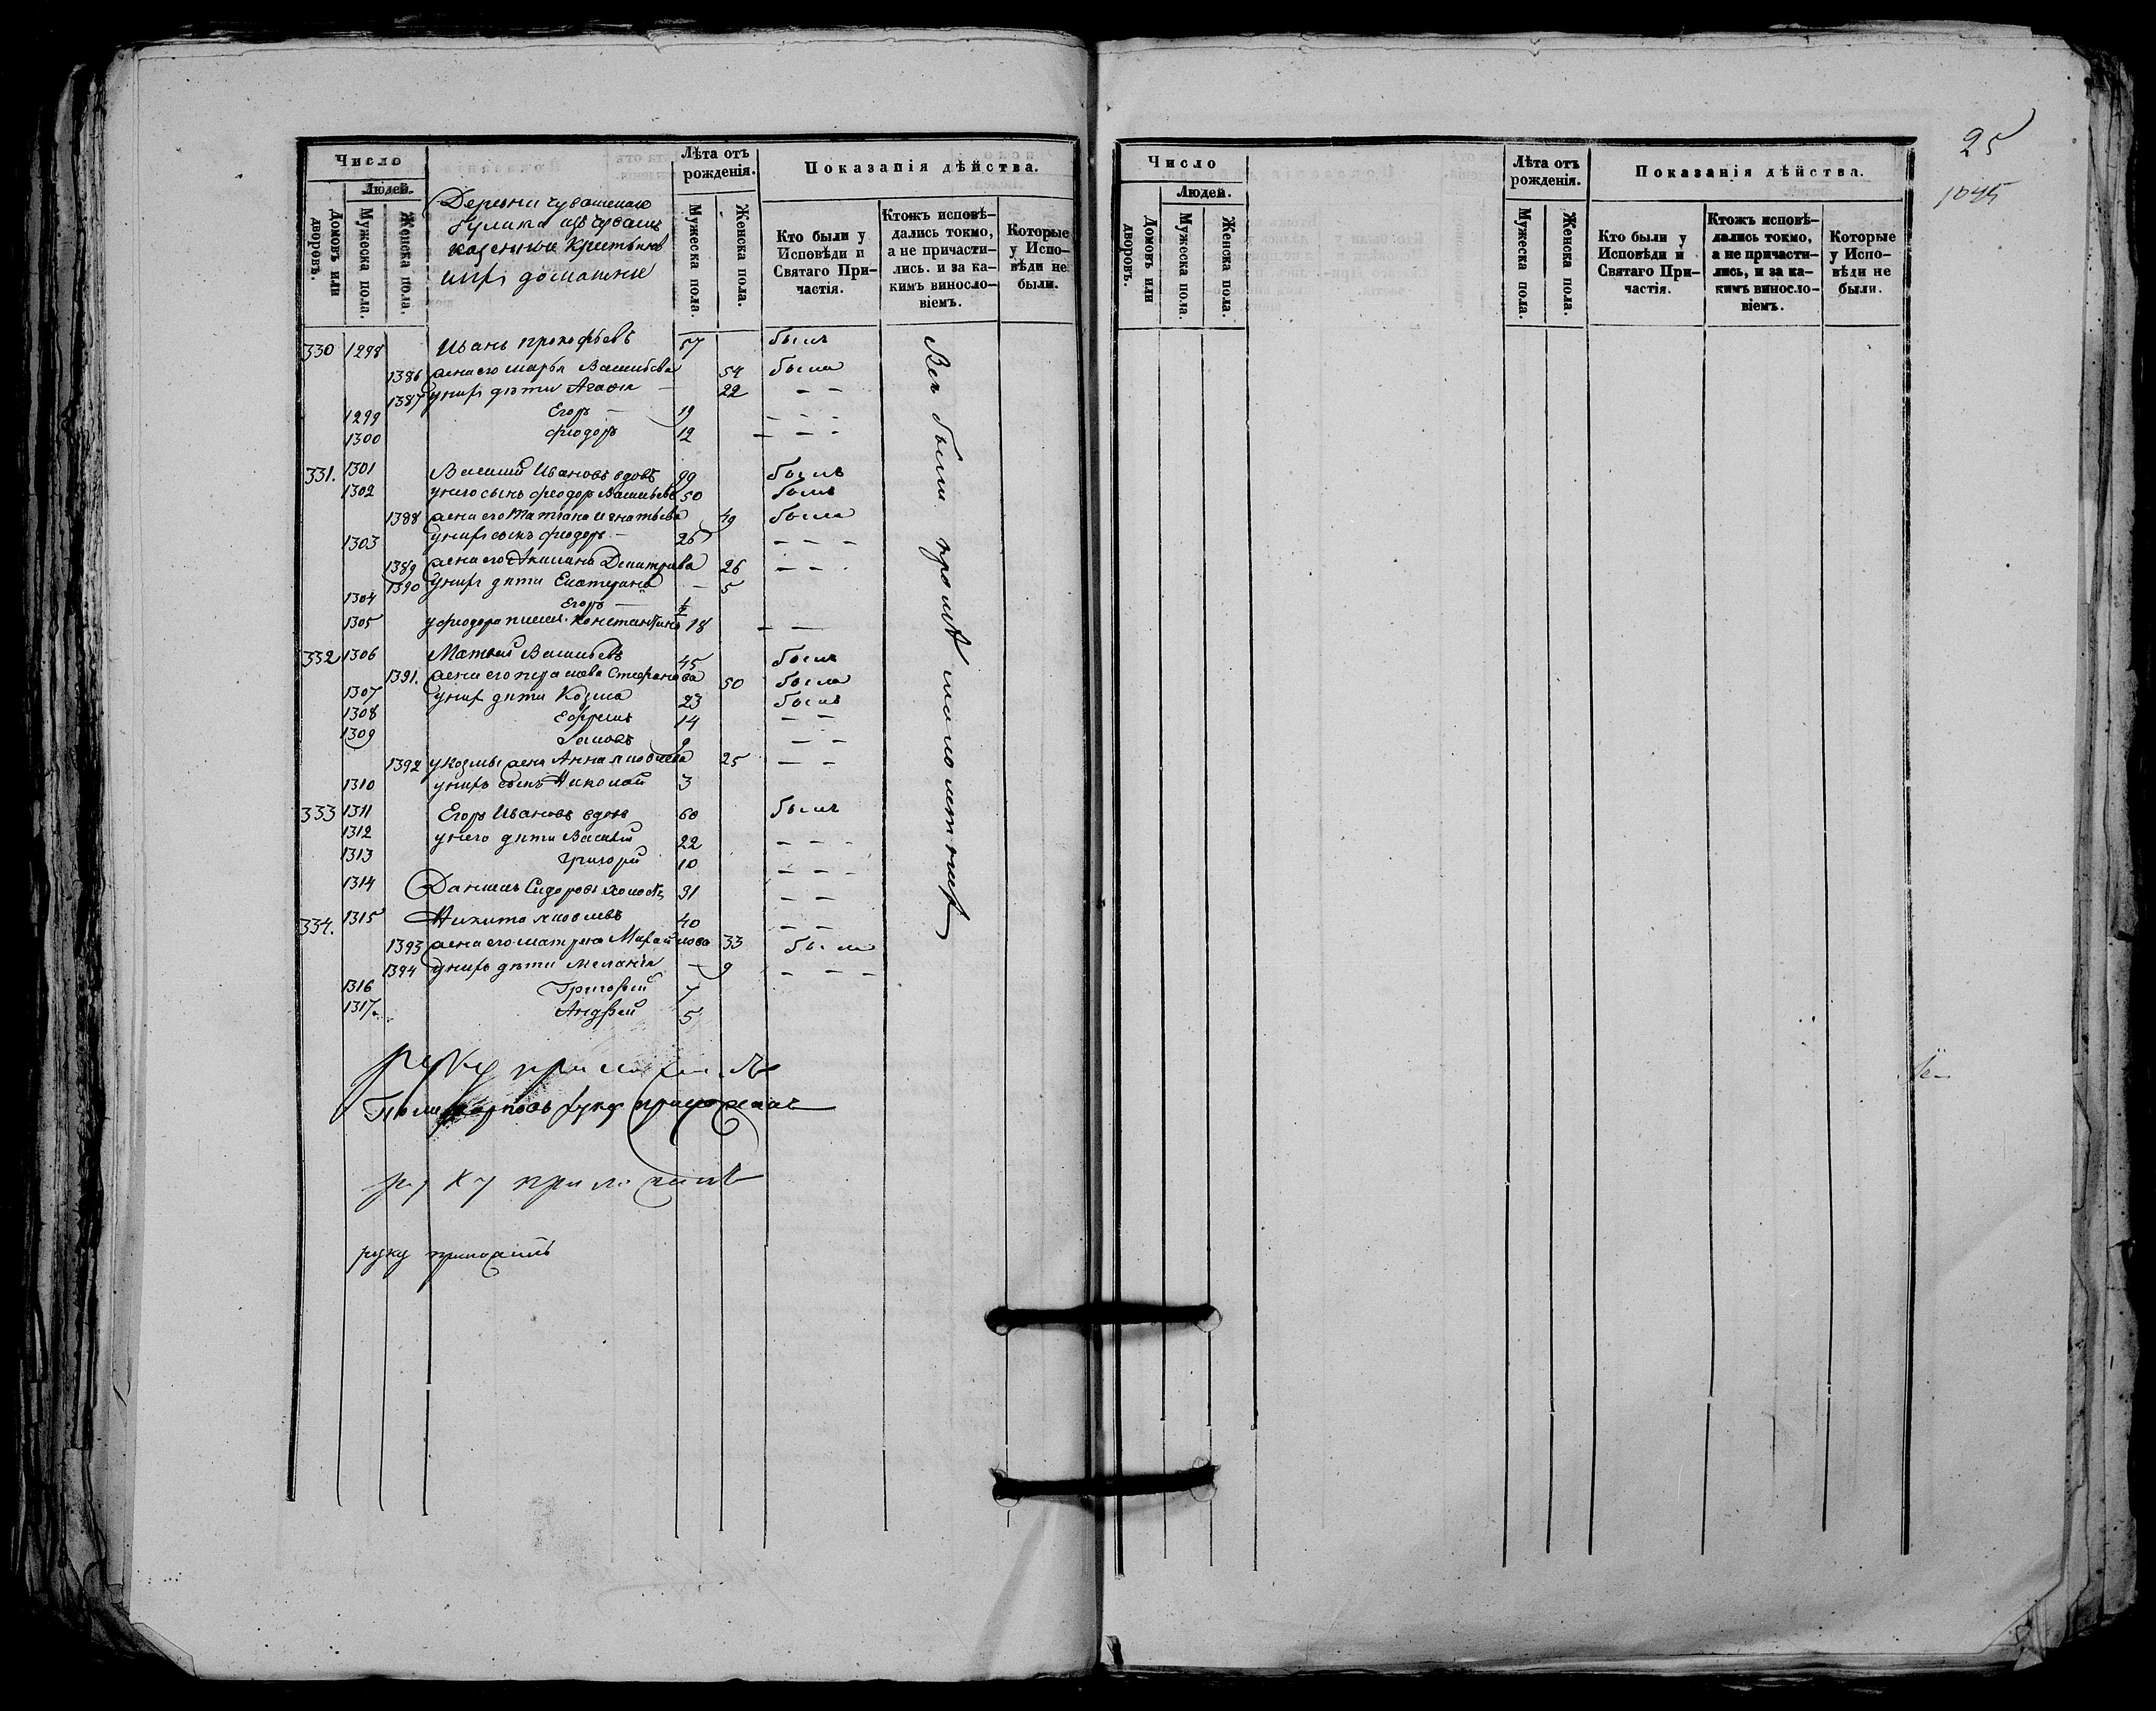 Число
Людей.
Домовъ или дворовъ.
Мужеска пола.
Женска пола.
Деревни
казенные крестьяне
ихъ домашніе
Лѣта отъ рожденія.
Мужеска пола.
Женска пола.
Показанія дѣйства.
Кто были у Исповѣди и Святаго Причастія.
Ктожъ исповѣдались токмо, а не причастились. и за какимъ винословіемъ.
Которые у Исповѣди не были.
330 1298 Иванъ Прокофьевъ 57 былъ
1386 жена его Марья Васильева 54 была
1387 у нихъ дѣти 22 –
1299 Егоръ – 19 – – –
1300 Феодоръ 12 – – –
331. 1301 Василий Ивановъ вдовъ былъ
1302 у него сынъ Феодоръ Васильевъ 50 былъ
1388 жена его Татіана Игнатьева 49 была
1303 у нихъ сынъ Феодоръ – 26 – – –
1389 жена его Акилина Димитріева 26 – – –
1390 у нихъ дѣти Екатерина – 5
1304 Егоръ –
1305 у Феодора Константинъ 18 – –
332 1306 Матвей Васильевъ 45 былъ
1391. жена его Стефанова 50 была
1307 у нихъ дѣти Козма 23 былъ
1308 Ефремъ 14 – –
1309 9 – –
1392 у Козмы жена Анна Яковлева 25 – –
1310 у нихъ сынъ Николай 3
333 1311 Егоръ Ивановъ вдовъ 60 былъ
1312 у него дѣти Василій 22 – – –
1313 Григорій 10 – – –
1314 Даниилъ Сидоровъ холостъ 31 – –
334. 1315 Никита Яковлевъ 40 – –
1393 жена его Матрена 33 была
1394 у нихъ дѣти Меланія – 9 – – –
1316 Григорій 7
1317. Андрей 5
Всѣ были кромѣ малолетнихъ
руку приложилъ
руку приложилъ
руку приложилъ
руку приложилъ
25
1045
Число
Людей.
Домовъ или дворовъ.
Мужеска пола.
Женска пола.
Лѣта отъ рожденія.
Мужеска пола.
Женска пола.
Показанія дѣйства.
Кто были у Исповѣди и Святаго Причастія.
Ктожъ исповѣдались токмо, а не причастились, и за какимъ винословіемъ.
Которые у Исповѣди не были.